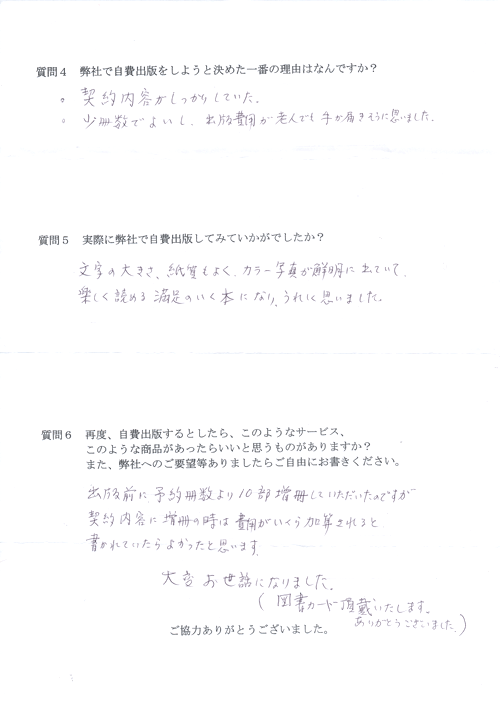 質問４ 弊社で自費出版をしようと決めた一番の理由はなんですか？
。契約内容がしっかりしていた。
。少冊数でよいし、出版費用が老人でも手が届きそうに思いました。
質問５ 実際に弊社で自費出版してみていかがでしたか？
文字の大きさ、紙質もよく、カラー写真が鮮明に出ていて、
楽しく読める満足のいく本になり、うれしく思いました。
質問６ 再度、自費出版するとしたら、このようなサービス、
このような商品があったらいいと思うものがありますか？
また、弊社へのご要望等ありましたらご自由にお書きください。
出版前に予約冊数より10部増冊していただいたのですが
契約内容に増冊の時は費用がいくら加算されると
書かれていたらよかったと思います。
大変お世話になりました。
（図書カード頂戴いたします。
ありがとうございました。）
ご協力ありがとうございました。